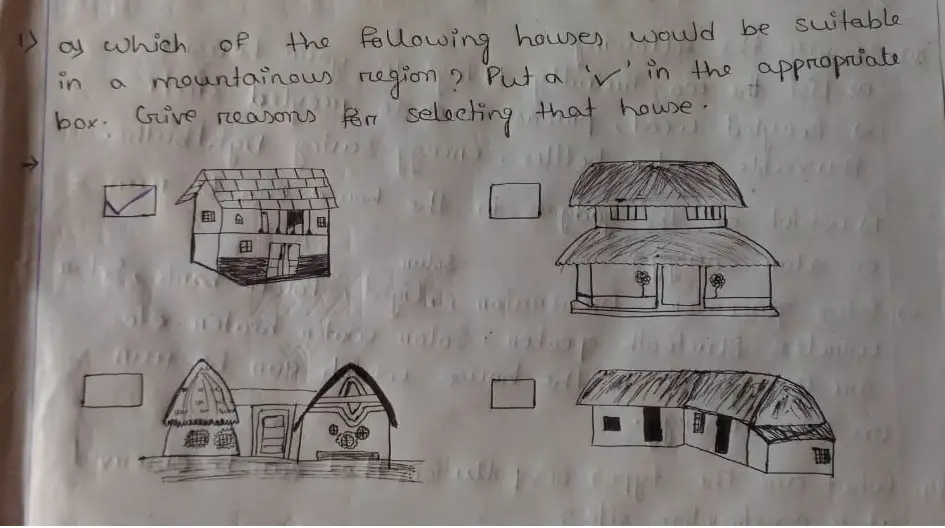 1) a) which of the following houses would be suitable
in a mountainous region? Put a '✓' in the appropriate
box. Give reasons for selecting that house.
→